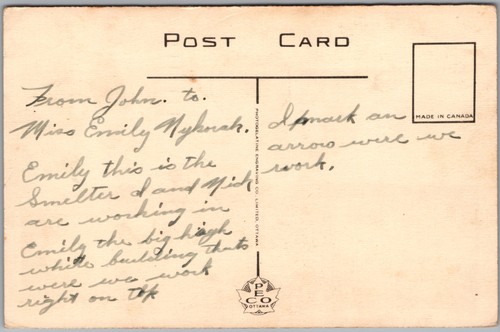 POST CARD
MADE IN CANADA
From John. to.
Miss Emily Nykorak.
Emily this is the
Smelter I and Nick
are working in
Emily the big high
white building thats
were we work
right on top
I mark an
arrow were we
work.
PHOTOGELATINE ENGRAVING CO. LIMITED, OTTAWA
PECO
OTTAWA